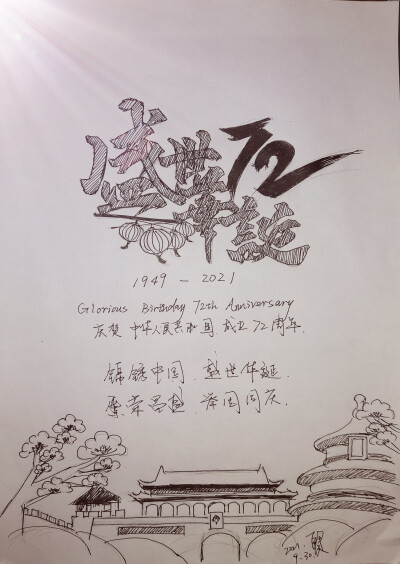 盛世华誕 72
1949 - 2021
Glorious Birthday 72th Anniversary
庆贺中华人民共和国成立72周年.
锦绣中国. 盛世华诞.
繁荣昌盛. 举国同庆
2021.
9.30.